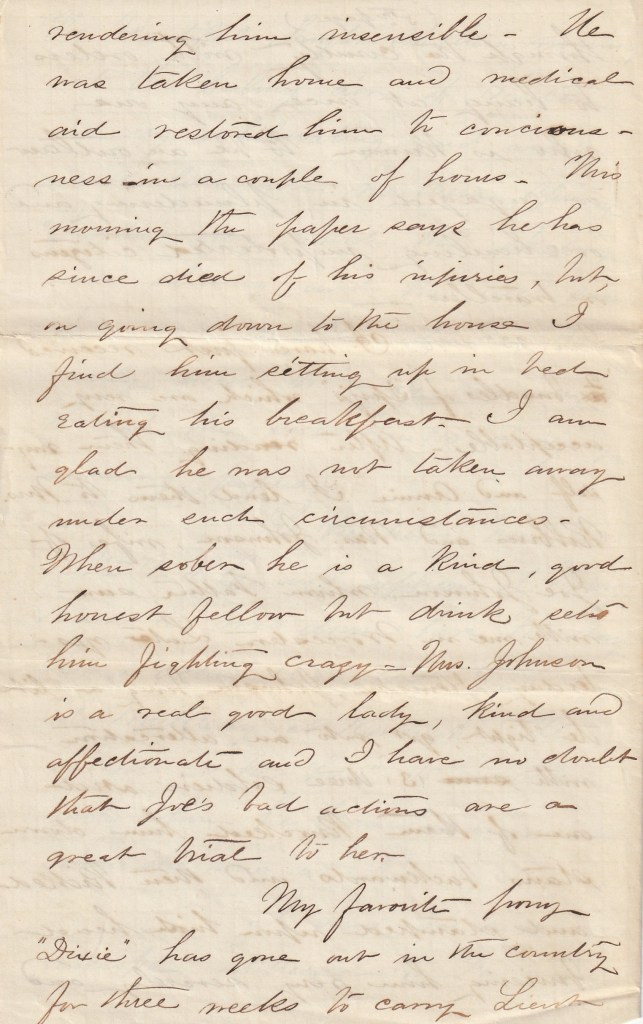 rendering him insensible - He
was taken home and medical
aid restored him to concious-
ness in a couple of hours - This
morning the paper says he has
since died of his injuries, but,
on going down to the house I
find him sitting up in bed
eating his breakfast - I am
glad he was not taken away
under such circumstances -
When sober he is a kind, good
honest fellow but drink sets
him fighting crazy - Mrs. Johnson
is a real good lady, kind and
affectionate and I have no doubt
that Joe's bad actions are a
great trial to her.
My favorite pony
"Dixie" has gone out in the country
for three weeks to carry Lieut